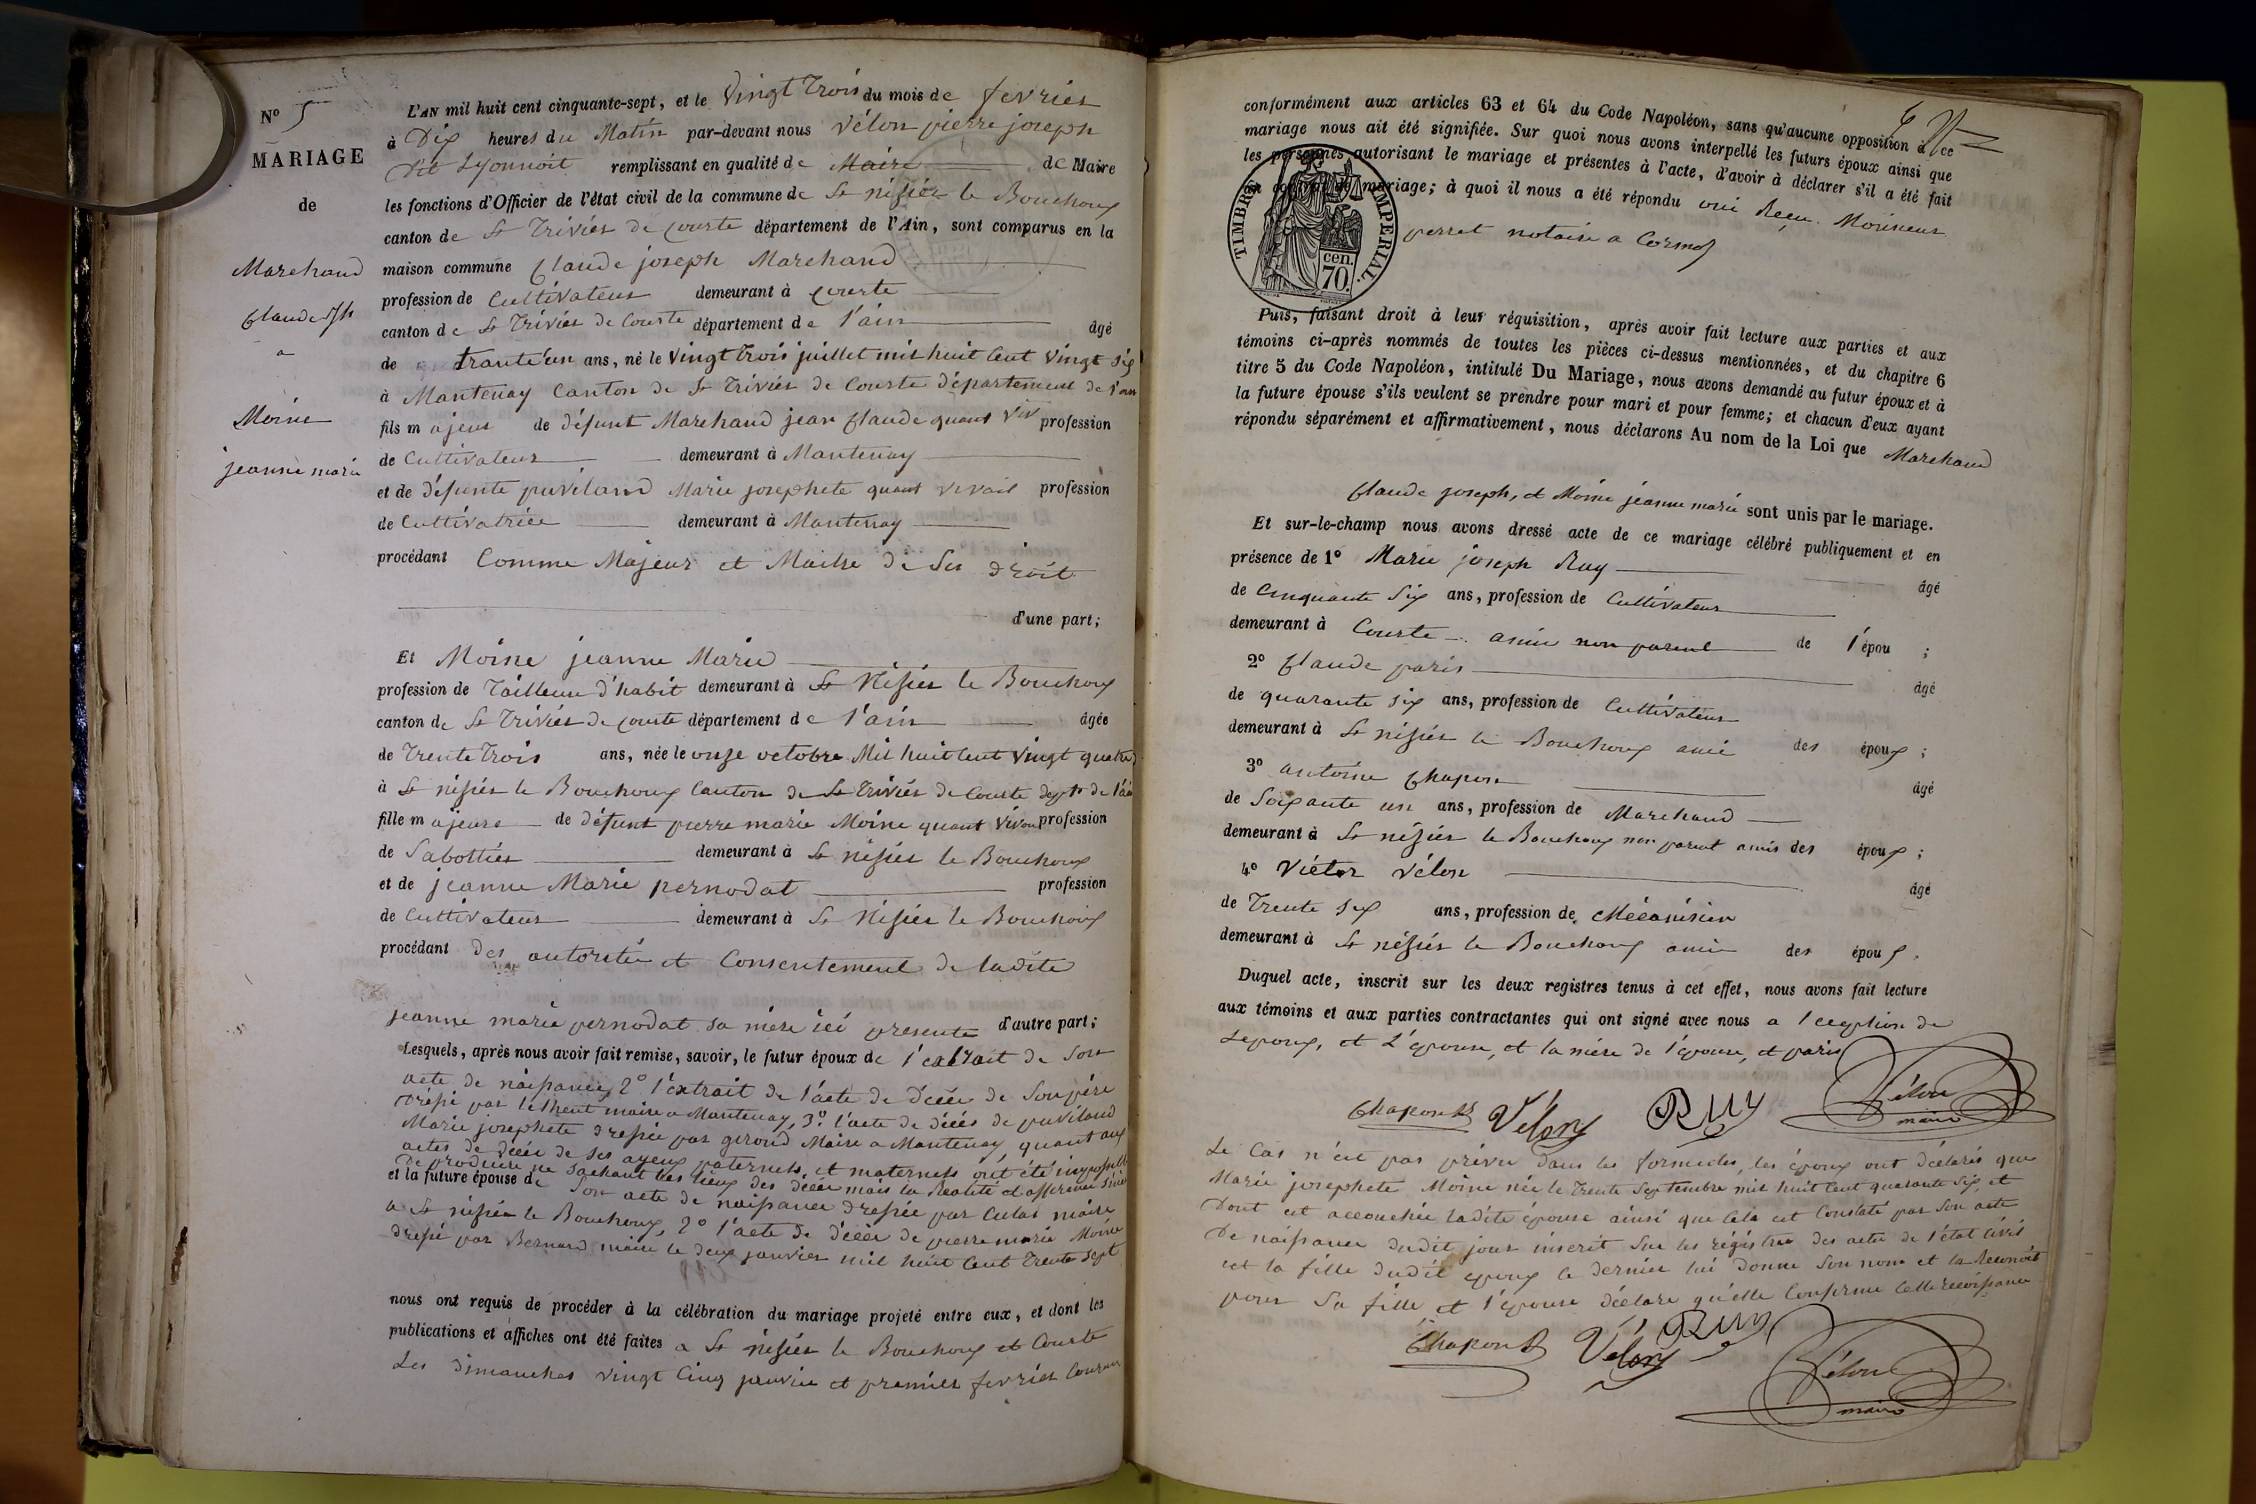 N° 5
MARIAGE
de
Marchand
Claude Jh
a
Moine
jeanne marie
L'AN mil huit cent cinquante-sept, et le Vingt trois du mois de fevrier
à Dix heures du Matin par-devant nous Vélon pierre joseph
dit Lyonnoit remplissant en qualité de Maire de Maire
les fonctions d'Officier de l'état civil de la commune de St nisier le Bouchoux
canton de St Trivier de Courte département de l'Ain, sont comparus en la
maison commune Claude joseph Marchand
profession de Cultivateur demeurant à Courte
canton de St Trivier de Courte département de l'ain âgé
de trante un ans, né le Vingt trois juillet mil huit Cent Vingt Six
à Mantenay Canton de St Trivier de Courte département de l'ain
fils majeur de défunt Marchand jean Claude quant viv profession
de Cultivateur demeurant à Mantenay
et de défunte puviland Marie josephete quant vivait profession
de Cultivatrice demeurant à Mantenay
procédant Comme Majeur et Maitre de Ses droit
d'une part;
Et Moine jeanne Marie
profession de Tailleur d'habit demeurant à St Nisier le Bouchoux
canton de St Trivier de Courte département de l'ain âgée
de Trente Trois ans, née le onze octobre Mil huit Cent Vingt quatre
à St nisier le Bouchoux Canton de St Trivier de Courte dept de l'ain
fille majeure de défunt pierre marie Moine quant vivon profession
de Sabottier demeurant à St nisier le Bouchoux
et de jeanne Marie pernodat profession
de Cultivateur demeurant à St Nisier le Bouchoux
procédant Des autorité et Consentement de ladite
jeanne marie pernodat sa mére ici presente d'autre part;
Lesquels, après nous avoir fait remise, savoir, le futur époux de l'extrait de Son
acte de naissance, 2° l'extrait de l'acte de décée de Son pére
drésé par maire a Mantenay, 3° l'acte de décés de puviland
Marie josephete dressée par giroud Maire a Mantenay, quant aux
actes de décée de ses ayeux paternels et maternels ont été impossible
de produire ne Sachant les lieux des décée mais la Realité et
et la future épouse de Son acte de naissance dressée par Culas maire
a St nisier le Bouchoux, 2° l'acte de décée de pierre marie Moine
dressé par Bernard maire le deux janvier mil huit Cent Trente Sept
nous ont requis de procéder à la célébration du mariage projeté entre eux, et dont les
publications et affiches ont été faites a St nisier le Bouchoux et Courte
Les dimanches vingt Cinq janvier et premier fevrier Courant
conformément aux articles 63 et 64 du Code Napoléon, sans qu'aucune opposition à ce
mariage nous ait été signifiée. Sur quoi nous avons interpellé les futurs époux ainsi que
les personnes autorisant le mariage et présentes à l'acte, d'avoir à déclarer s'il a été fait
un contrat de mariage; à quoi il nous a été répondu oui Reçu Monsieur
perret notaire a Cormoz
TIMBRE IMPERIAL
cen.
70.
Puis, faisant droit à leur réquisition, après avoir fait lecture aux parties et aux
témoins ci-après nommés de toutes les pièces ci-dessus mentionnées, et du chapitre 6
titre 5 du Code Napoléon, intitulé Du Mariage, nous avons demandé au futur époux et à
la future épouse s'ils veulent se prendre pour mari et pour femme; et chacun d'eux ayant
répondu séparément et affirmativement, nous déclarons Au nom de la Loi que Marchand
Claude joseph, et Moine jeanne marie sont unis par le mariage.
Et sur-le-champ nous avons dressé acte de ce mariage célébré publiquement et en
présence de 1° Marie joseph Ruy âgé
de Cinquante Six ans, profession de Cultivateur
demeurant à Courte amie non parent de l'épou ;
2° Claude paris âgé
de quarante six ans, profession de Cultivateur
demeurant à St nisier le Bouchoux amie des époux ;
3° antoine Chapon âgé
de Soixante un ans, profession de Marchand
demeurant à St nisier le Bouchoux non parent amis des époux ;
4° Victor Vélon âgé
de Trente six ans, profession de Mécanisien
demeurant à St nisier le Bouchoux amie des époux.
Duquel acte, inscrit sur les deux registres tenus à cet effet, nous avons fait lecture
aux témoins et aux parties contractantes qui ont signé avec nous a l'eception de
Lepoux, et L'épouse, et la mére de l'épouse, et paris
Chapon Vélon RUY Vélon
maire
Le Cas n'eut pas prévu dans les formules, les époux ont déclarés que
Marie josephete Moine née le Trente Septembre mil huit Cent quarante Six, et
Dont est accouchée ladite épouse ainsi que Cela est Constaté par Son acte
De naissance dudit jour inscrit Sur les régistres des actes de l'état civil
est la fille dudit epoux le dernier lui donne Son nom et la Reconoit
pour Sa fille et l'épouse déclare qu'elle Confirme Cette reconoissance
Chapon Vélon RUY Vélon
maire